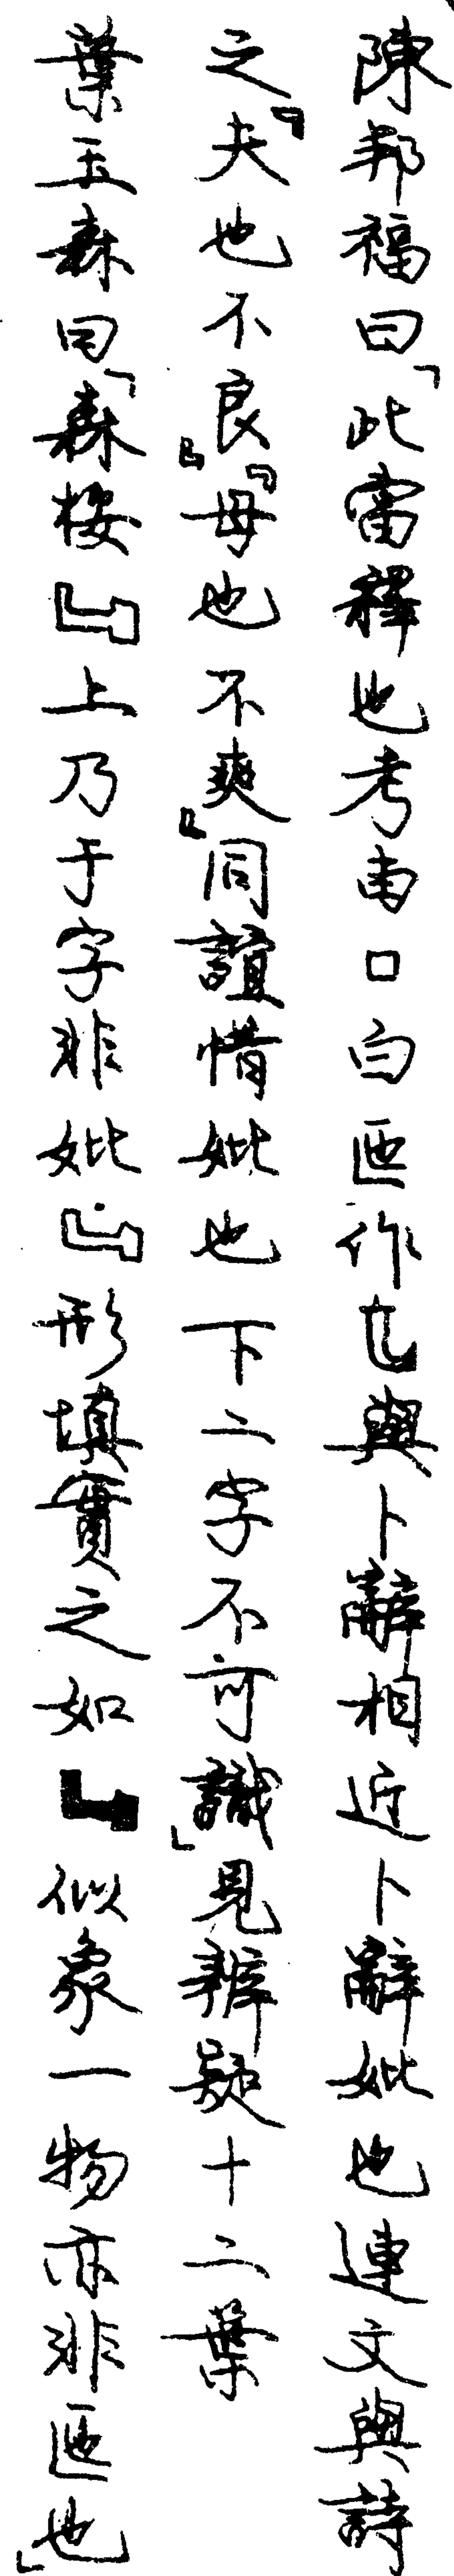 陳邦福曰「此當釋也考南口白匜作與卜辭相近卜辭妣也連文與詩
之『夫也不良』『母也不爽』同誼惜妣也下二字不可識」見辨疑十二葉
葉玉森曰「森桉上乃于字非妣形填實之如似象一物亦非匜也」